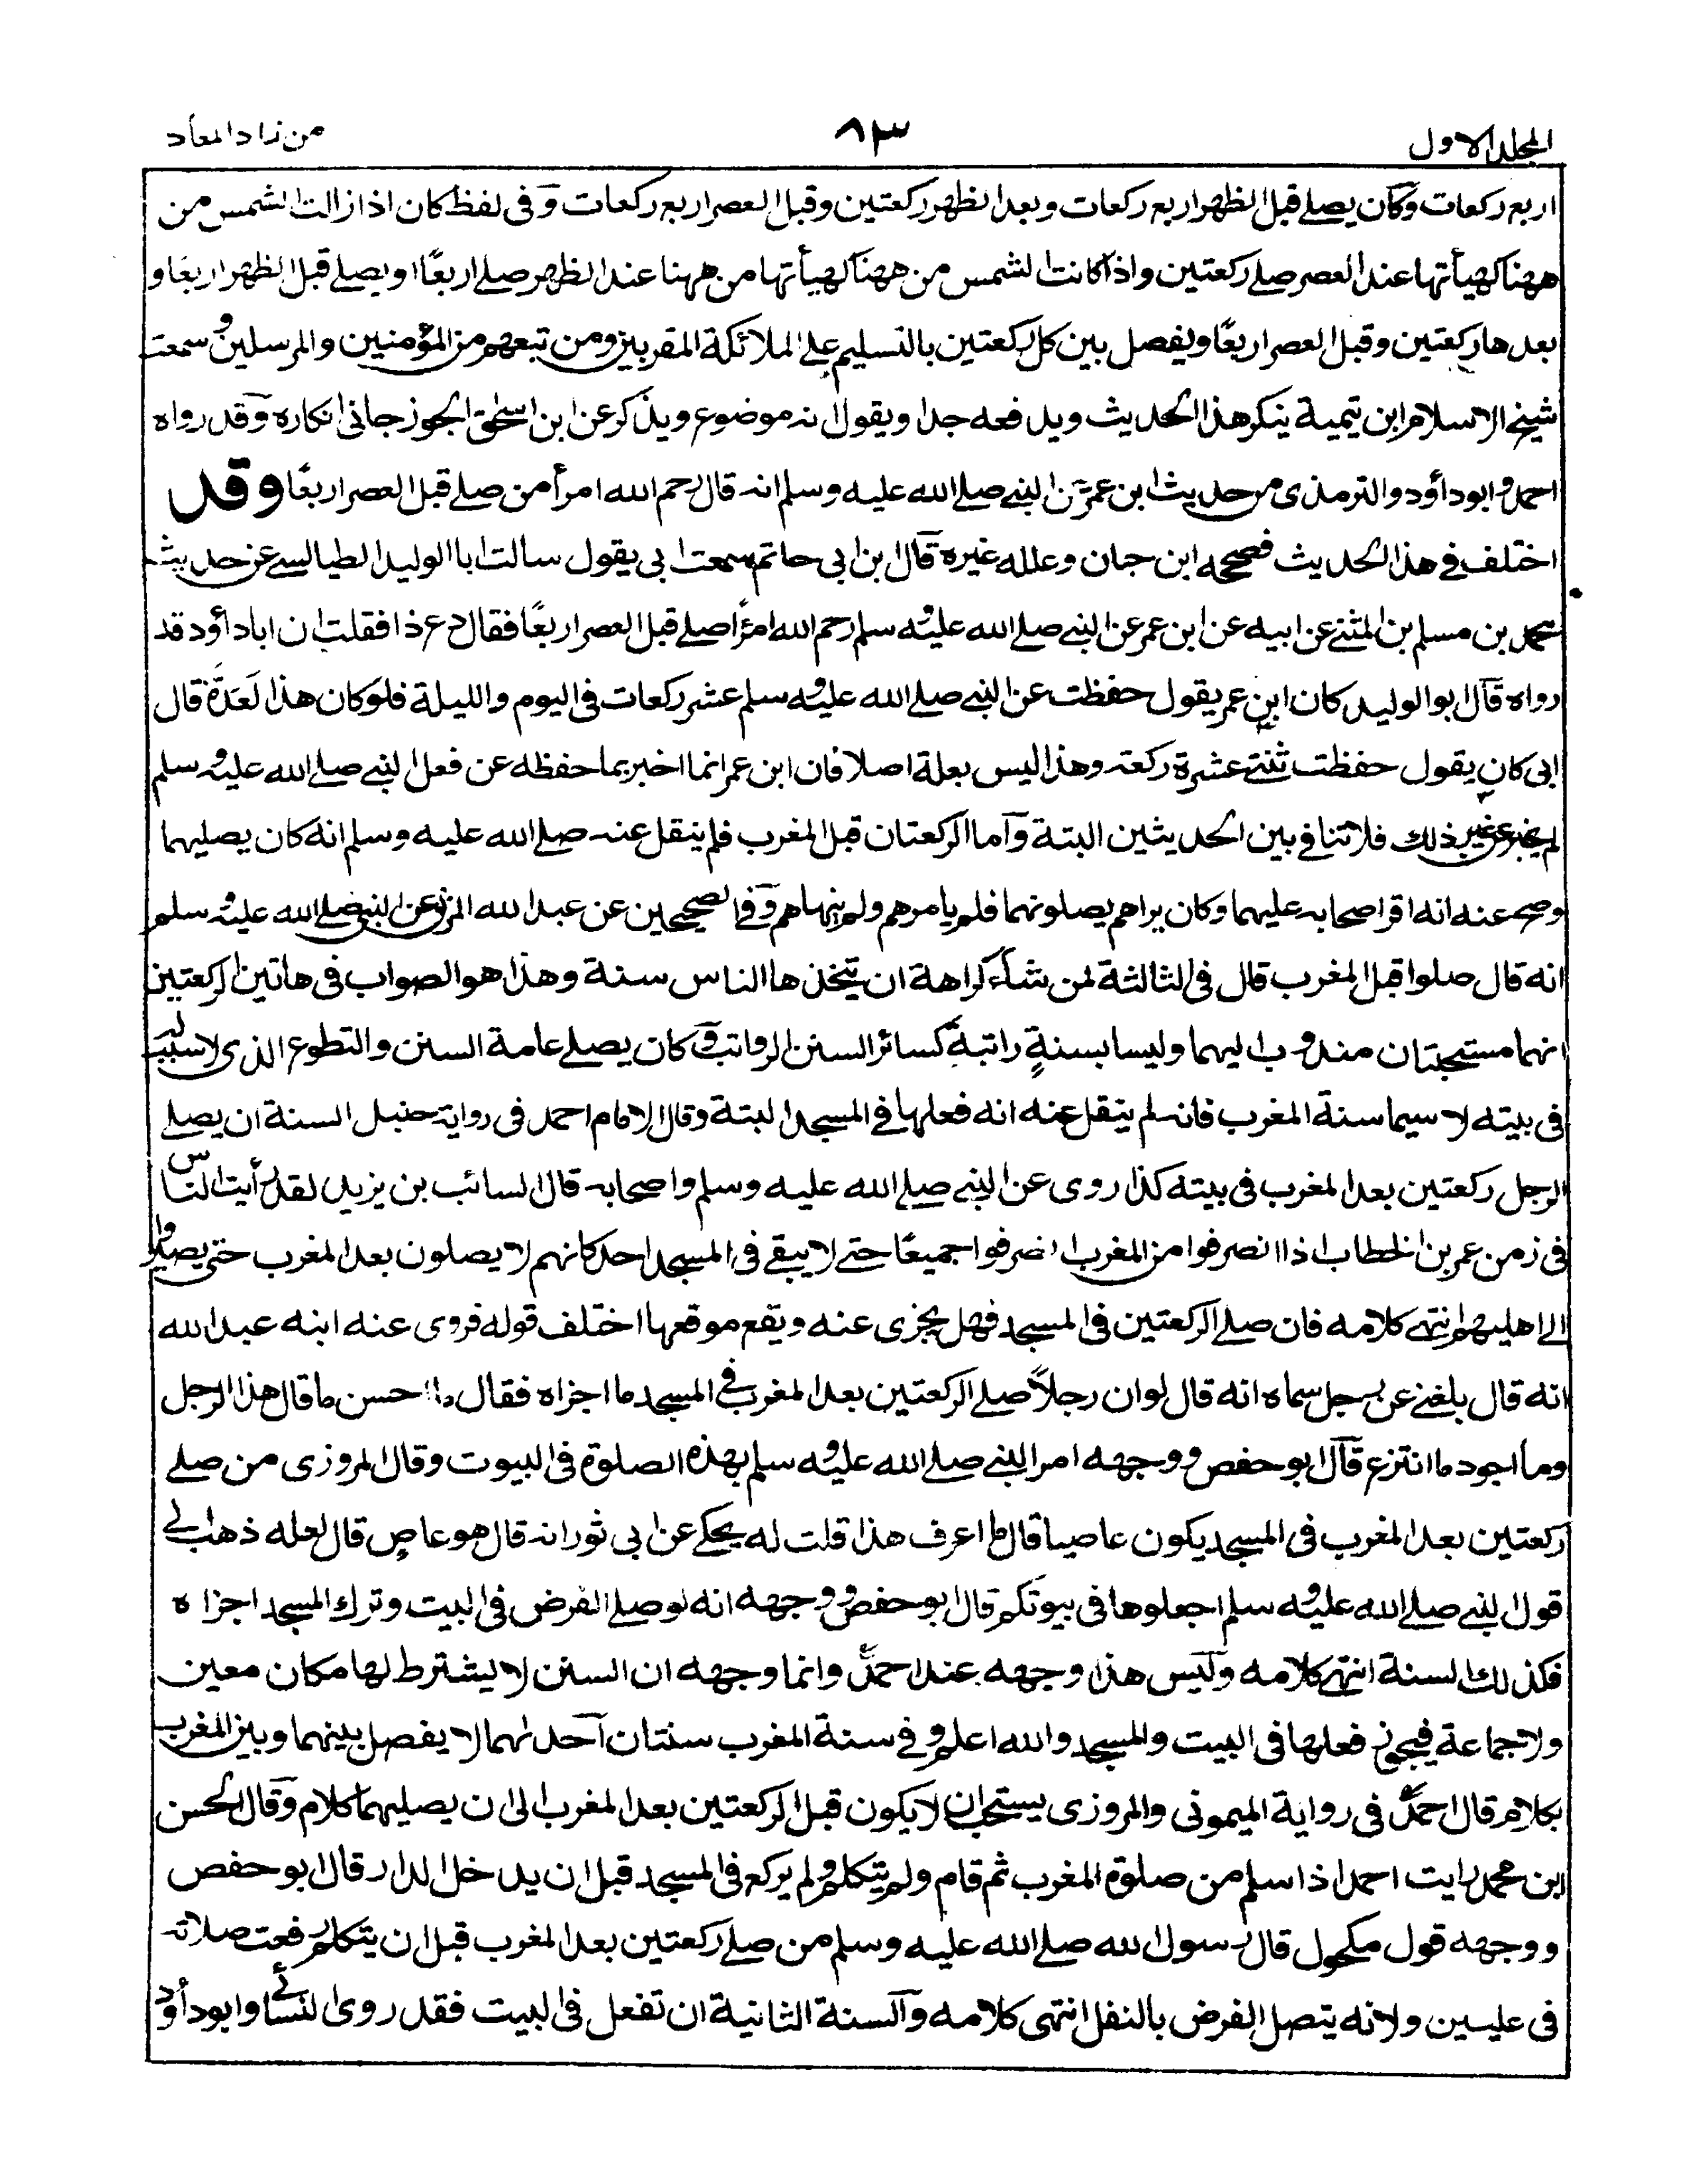 المجلد الاول
٨٣
من زاد المعاد
اربع ركعات وكان يصلے قبل الظهر اربع ركعات وبعد الظهر ركعتين وقبل العصر اربع ركعات وفى لفظ كان اذا زالت الشمس من
ههنا كهيأتها عند العصر صلے ركعتين واذا كانت الشمس من ههنا كهيأتها من ههنا عند الظهر صلے اربعًا ويصلے قبل الظهر اربعًا و
بعدها ركعتين وقبل العصر اربعًا ويفصل بين كل ركعتين بالتسليم علے الملائكة المقربين ومن تبعهم من المؤمنين والمرسلين وسمعت
شيخ الاسلام ابن تيمية ينكر هذا الحديث ويدفعه جدا ويقول انه موضوع ويذكر عن ابن اسحٰق الجوزجانى انكاره وقد رواه
احمد وابوداؤد والترمذى من حديث ابن عمر عن النبے صلے الله عليه وسلم انه قال رحم الله امرأ من صلے قبل العصر اربعًا وقد
اختلف فے هذا الحديث فصححه ابن حبان وعلله غيره قال ابن ابى حاتم سمعت ابى يقول سالت ابا الوليد الطيالسے عن حديث
محمد بن مسلم بن المثنے عن ابيه عن ابن عمر عن النبے صلے الله عليه وسلم رحم الله امرًا صلے قبل العصر اربعًا فقال دع ذا فقلت ان اباداؤد قد
رواه قال ابوالوليد كان ابن عمر يقول حفظت عن النبے صلے الله عليه وسلم عشر ركعات فى اليوم والليلة فلو كان هذا لَعَدَّهُ قال
ابى كان يقول حفظت ثنتے عشرة ركعة وهذا ليس بعلة اصلا فان ابن عمر انما اخبر بما حفظه عن فعل النبے صلے الله عليه وسلم
لم يخبر عن غير ذلك فلا تنافے بين الحديثين البتة واما الركعتان قبل المغرب فلم ينقل عنه صلے الله عليه وسلم انه كان يصليهما
وصح عنه انه اقر اصحابه عليهما وكان يراهم يصلونهما فلم يامرهم ولم ينهاهم وفے الصحيحين عن عبد الله المزنى عن النبے صلے الله عليه وسلم
انه قال صلوا قبل المغرب قال فى الثالثة لمن شاء كراهة ان يتخذها الناس سنة وهذا هو الصواب فى هاتين الركعتين
انهما مستحبتان مندوب اليهما وليسا بسنةٍ راتبة كسائر السنن الرواتب وكان يصلے عامة السنن والتطوع الذى لاسبب له
فى بيته لا سيما سنة المغرب فانه لم ينقل عنه انه فعلها فے المسجد البتة وقال الامام احمد فى رواية حنبل السنة ان يصلے
الرجل ركعتين بعد المغرب فى بيته كذا روى عن النبے صلے الله عليه وسلم واصحابه قال السائب بن يزيد لقد رأيت الناس
فى زمن عمر بن الخطاب اذا انصرفوا من المغرب انصرفوا جميعًا حتے لا يبقے فى المسجد احد كانهم لا يصلون بعد المغرب حتى يصيروا
الے اهليهم انتهے كلامه فان صلے الركعتين فى المسجد فهل يجزى عنه ويقع موقعها اختلف قوله فروى عنه ابنه عبد الله
انه قال بلغنے عن رجل سماه انه قال لو ان رجلاً صلے الركعتين بعد المغرب فے المسجد ما اجزاه فقال ما احسن ما قال هذا الرجل
وما اجود ما انتزع قال ابو حفص ووجهه امر النبے صلے الله عليه وسلم بهذه الصلوة فى البيوت وقال المروزى من صلے
ركعتين بعد المغرب فى المسجد يكون عاصيا قال ما اعرف هذا قلت له يحكے عن ابى ثور انه قال هو عاصٍ قال لعله ذهب الے
قول النبے صلے الله عليه وسلم اجعلوها فى بيوتكم قال ابو حفص ووجهه انه لو صلے الفرض فى البيت وترك المسجد اجزاه
فكذلك السنة انتهے كلامه وليس هذا وجهه عند احمد وانما وجهه ان السنن لا يشترط لها مكان معين
ولا جماعة فيجوز فعلها فى البيت والمسجد والله اعلم وفے سنة المغرب سنتان احدٰهما لا يفصل بينهما وبين المغرب
بكلام قال احمد فى رواية الميمونى والمروزى يستحب ان لا يكون قبل الركعتين بعد المغرب الى ان يصليهما كلام وقال الحسن
ابن محمد رايت احمد اذا سلم من صلوة المغرب ثم قام ولم يتكلم ولم يركع فى المسجد قبل ان يدخل الدار قال ابو حفص
ووجهه قول مكحول قال رسول الله صلے الله عليه وسلم من صلے ركعتين بعد المغرب قبل ان يتكلم رفعت صلاته
فى عليين ولانه يتصل الفرض بالنفل انتهى كلامه والسنة الثانية ان تفعل فى البيت فقد روى النسائے وابوداؤد